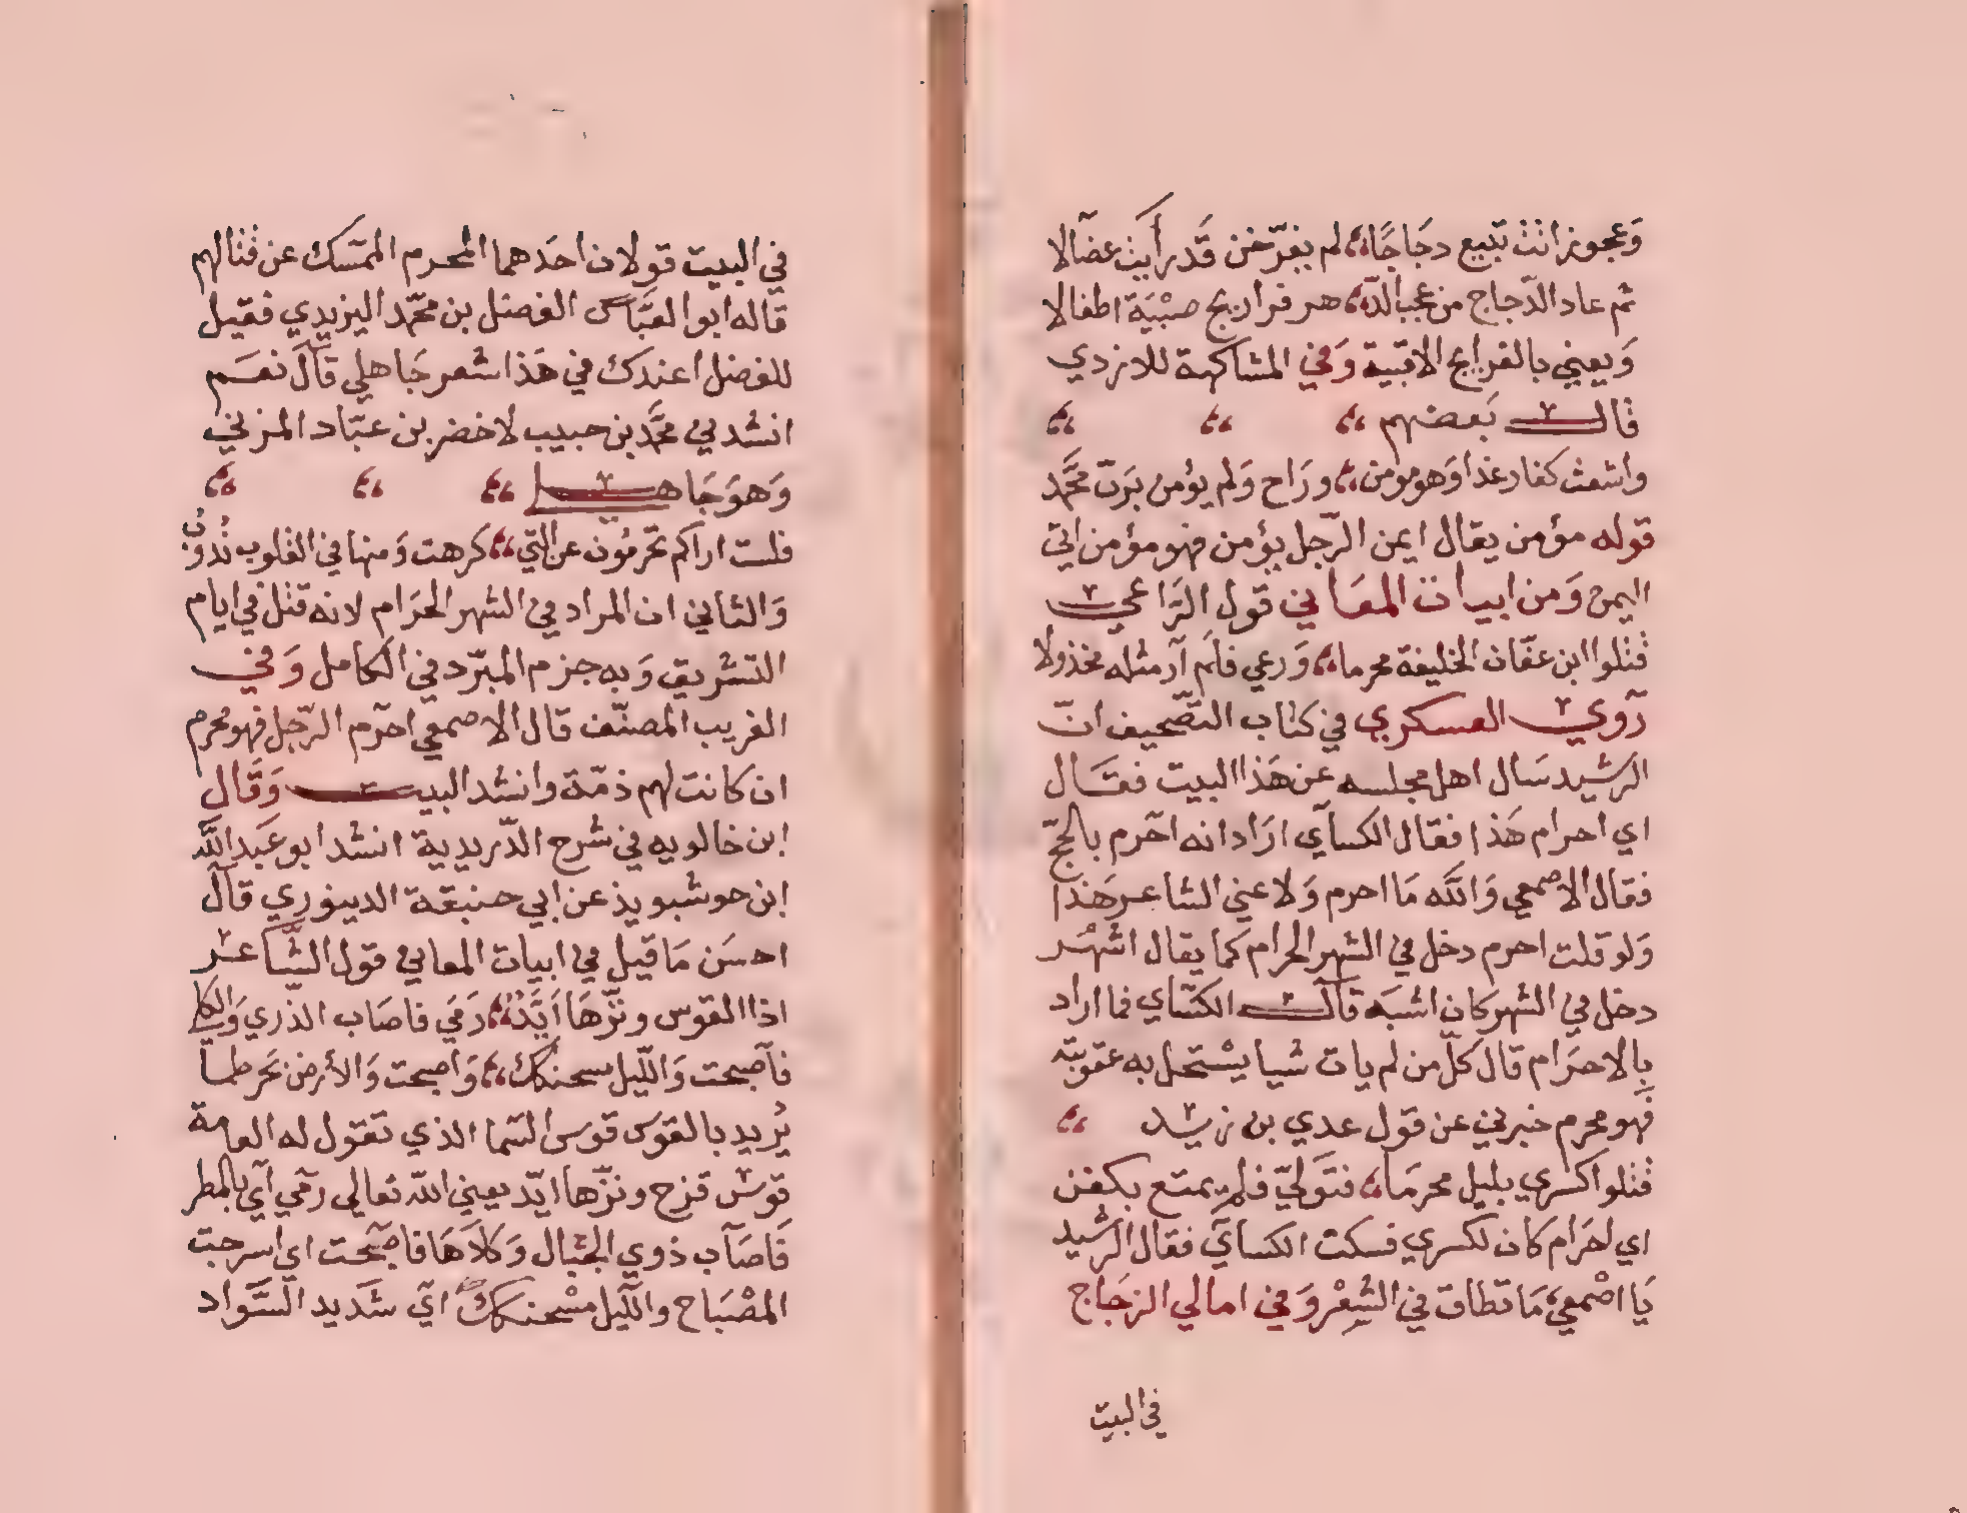 وَعجوز انت تبيع دجَاجًا، لم يفرّخن قَد رأيت عضَالا
ثم عاد الدّجاج من عجب الدّ، هر فراريج صبْيَة اطفالا
وَيعني بالفراريج الاقبية وَفي المشاكهة للازدي
قالــ بَعضهم
واشعث كفار غدا وَهو مومن، ورَاح وَلم يؤمن بَربّ محَّمد
قوله مؤمن يقال ايمن الرّجل يؤمن فهو مؤمن اتي
اليمن وَمن ابيات المعَاني قول الرَّاعي
قتلوا ابن عفّان الخليفة محرما، وَرعي فلَم آر مثله مخذولا
رَوي العسكري في كتاب التصّحيف انّ
الرشيد سَال اهل مجلسه عن هَذا البيت فقَال
اي احرام هَذا فقال الكسآي ارَاد انه احَرم بالحجّ
فقال الاصمعي وَاللَّه مَا احرم وَلا عني الشاعر هَذا
وَلو قلت احرم دخل في الشهر الحرام كما يقال اشهْر
دخل في الشهر كان اشبَه قالَـ الكسَّاي فما اراد
بِالاحرَام قال كلّ من لم يات شيا يسْتحل به عقوبَته
فهو محرم خبرني عن قول عدي بن زيد
قتلوا كسري بليل محرمَا، فتَولّي فلم يمتع بكفن
اي احَرام كان لكسري فسكت الكسآي فقال الرَّشيد
يَا اصْمعي مَا تطاق في الشِعْر وَفي امالي الزجَاج
في البيت
في البيت قولان احَدهما المحرم الممَسك عن قتالهم
قاله ابو العبَّاس الفضل بن محمّد اليزيدي فقيل
للفضل اعندك في هَذا شعر جَاهلي قآلَ نعَم
انشدني محَّمد بن حبيب لاخضر بن عبّاد المزني
وَهوَ جَاهــلي
فلست اراكم تحَرمُون عن الّتي، كرهت وَمنها في القلوب نُدُوبُ
وَالثاني ان المراد في الشهر الحرَام لانه قتل في ايام
التشريق وَبه جزم المبّرد في الكامل وَفي
الغريب المصنّف قال الاصمعي احَرم الرّجل فهو مُحرم
ان كانت لهم ذمّة وانشد البيــت وَقَال
ابن خالويه في شرح الدّريدية انشد ابو عبَد اللَّه
ابن حوشبويذ عن ابي حنيفة الدينوري قالَ
احسَن مَا قيل في ابيات المعاني قول الشَّاعر
اذا القوس وتّرهَا اَيّدُ، رَمَي فاصَاب الذّري وَالكلا
فآصبَحت وَاللّيل مسحنكك، وَاصبحت وَالأرض بحَر طما
يُريد بالقوس قوس السّما الذي تقول له العامة
قوسْ قزح ووتّرها ايّد يعيني اللّه تعالي رَمي آي بالمطر
فَاصَاب ذوي الجبال وَكلاَهَا فاصبَحت اي اسرجت
المصْبَاح واللّيل مسْحنكك ايَ شَديد السَّواد